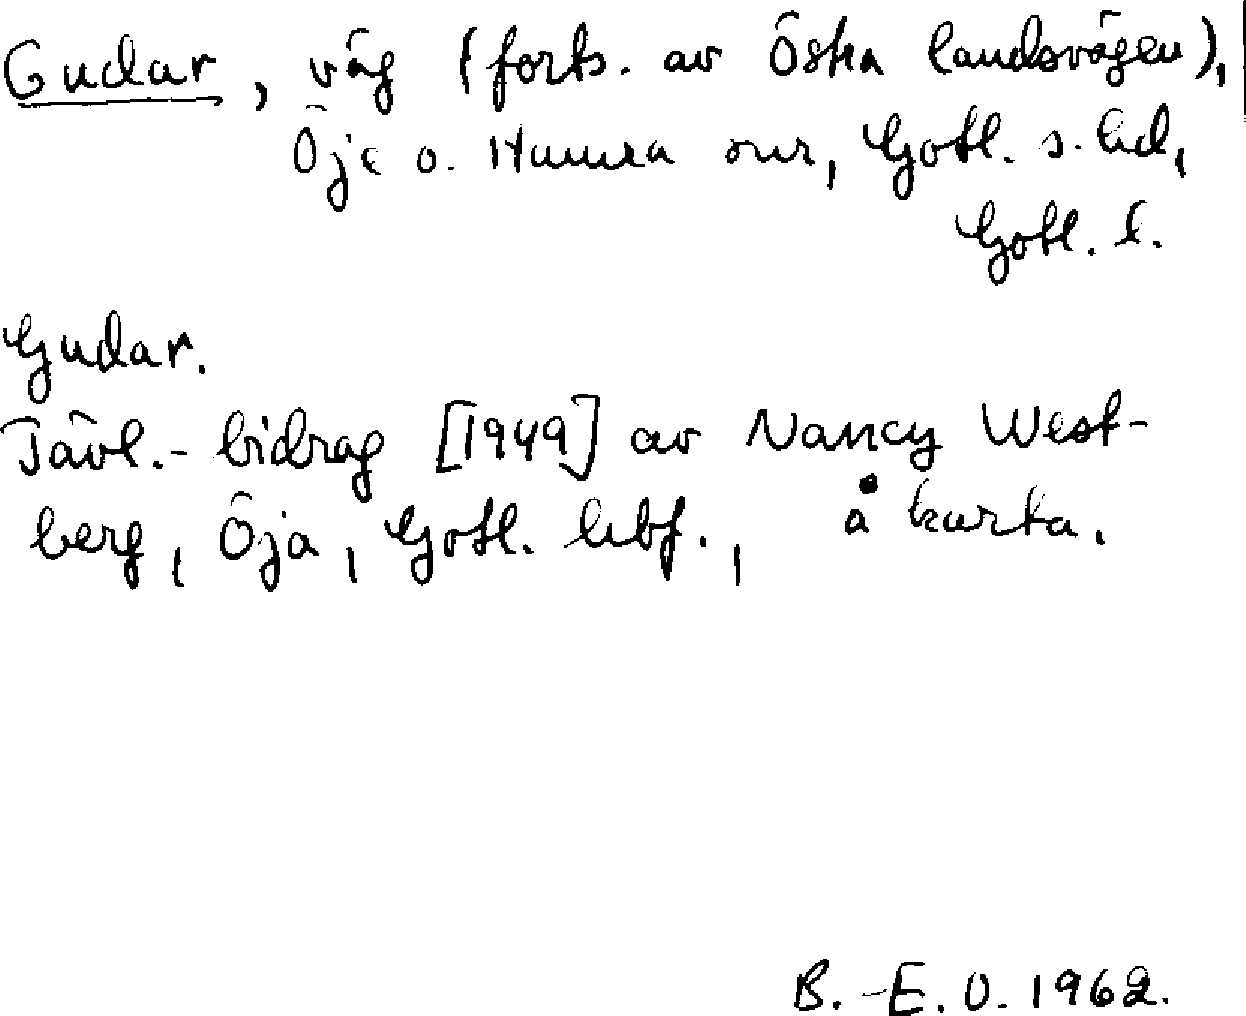 Gudar, väg (forts. av Östra landsvägen),
Öja o. Hamra snr, Gotl. s. hd,
Gotl. l.
Gudar.
Tävl.-bidrag [1949] av Nancy West-
berg, Öja, Gotl. hbf., å karta.
B.-E. O. 1962.